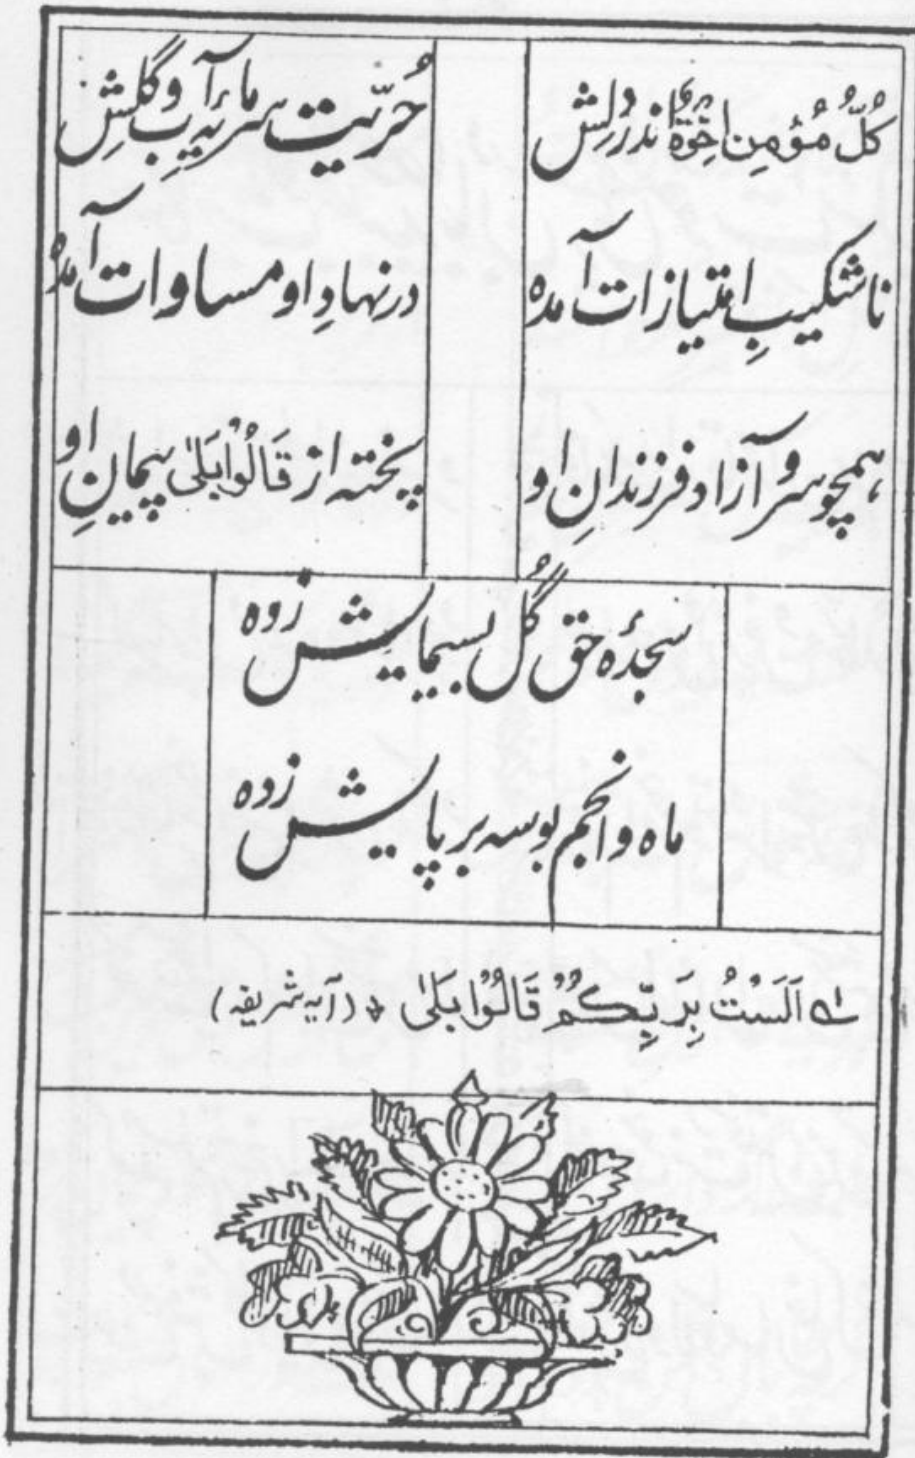 کُلُّ مُؤمِنٍ اِخْوَۃٌ اندر دِلش حُرّیت سرمایۂ آب و گِلش
ناشکیبِ امتیازات آمدہ در نہادِ او مساوات آمدہ
ہمچو سرو آزاد فرزندانِ او پختہ از قَالُوْا بَلٰی پیمانِ او
سجدۂ حق گُل بسیمایش زدہ
ماہ و انجم بوسہ بر پایش زدہ
لہ اَلَسْتُ بِرَبِّکُمْ قَالُوْا بَلٰی (آیہ شریفہ)